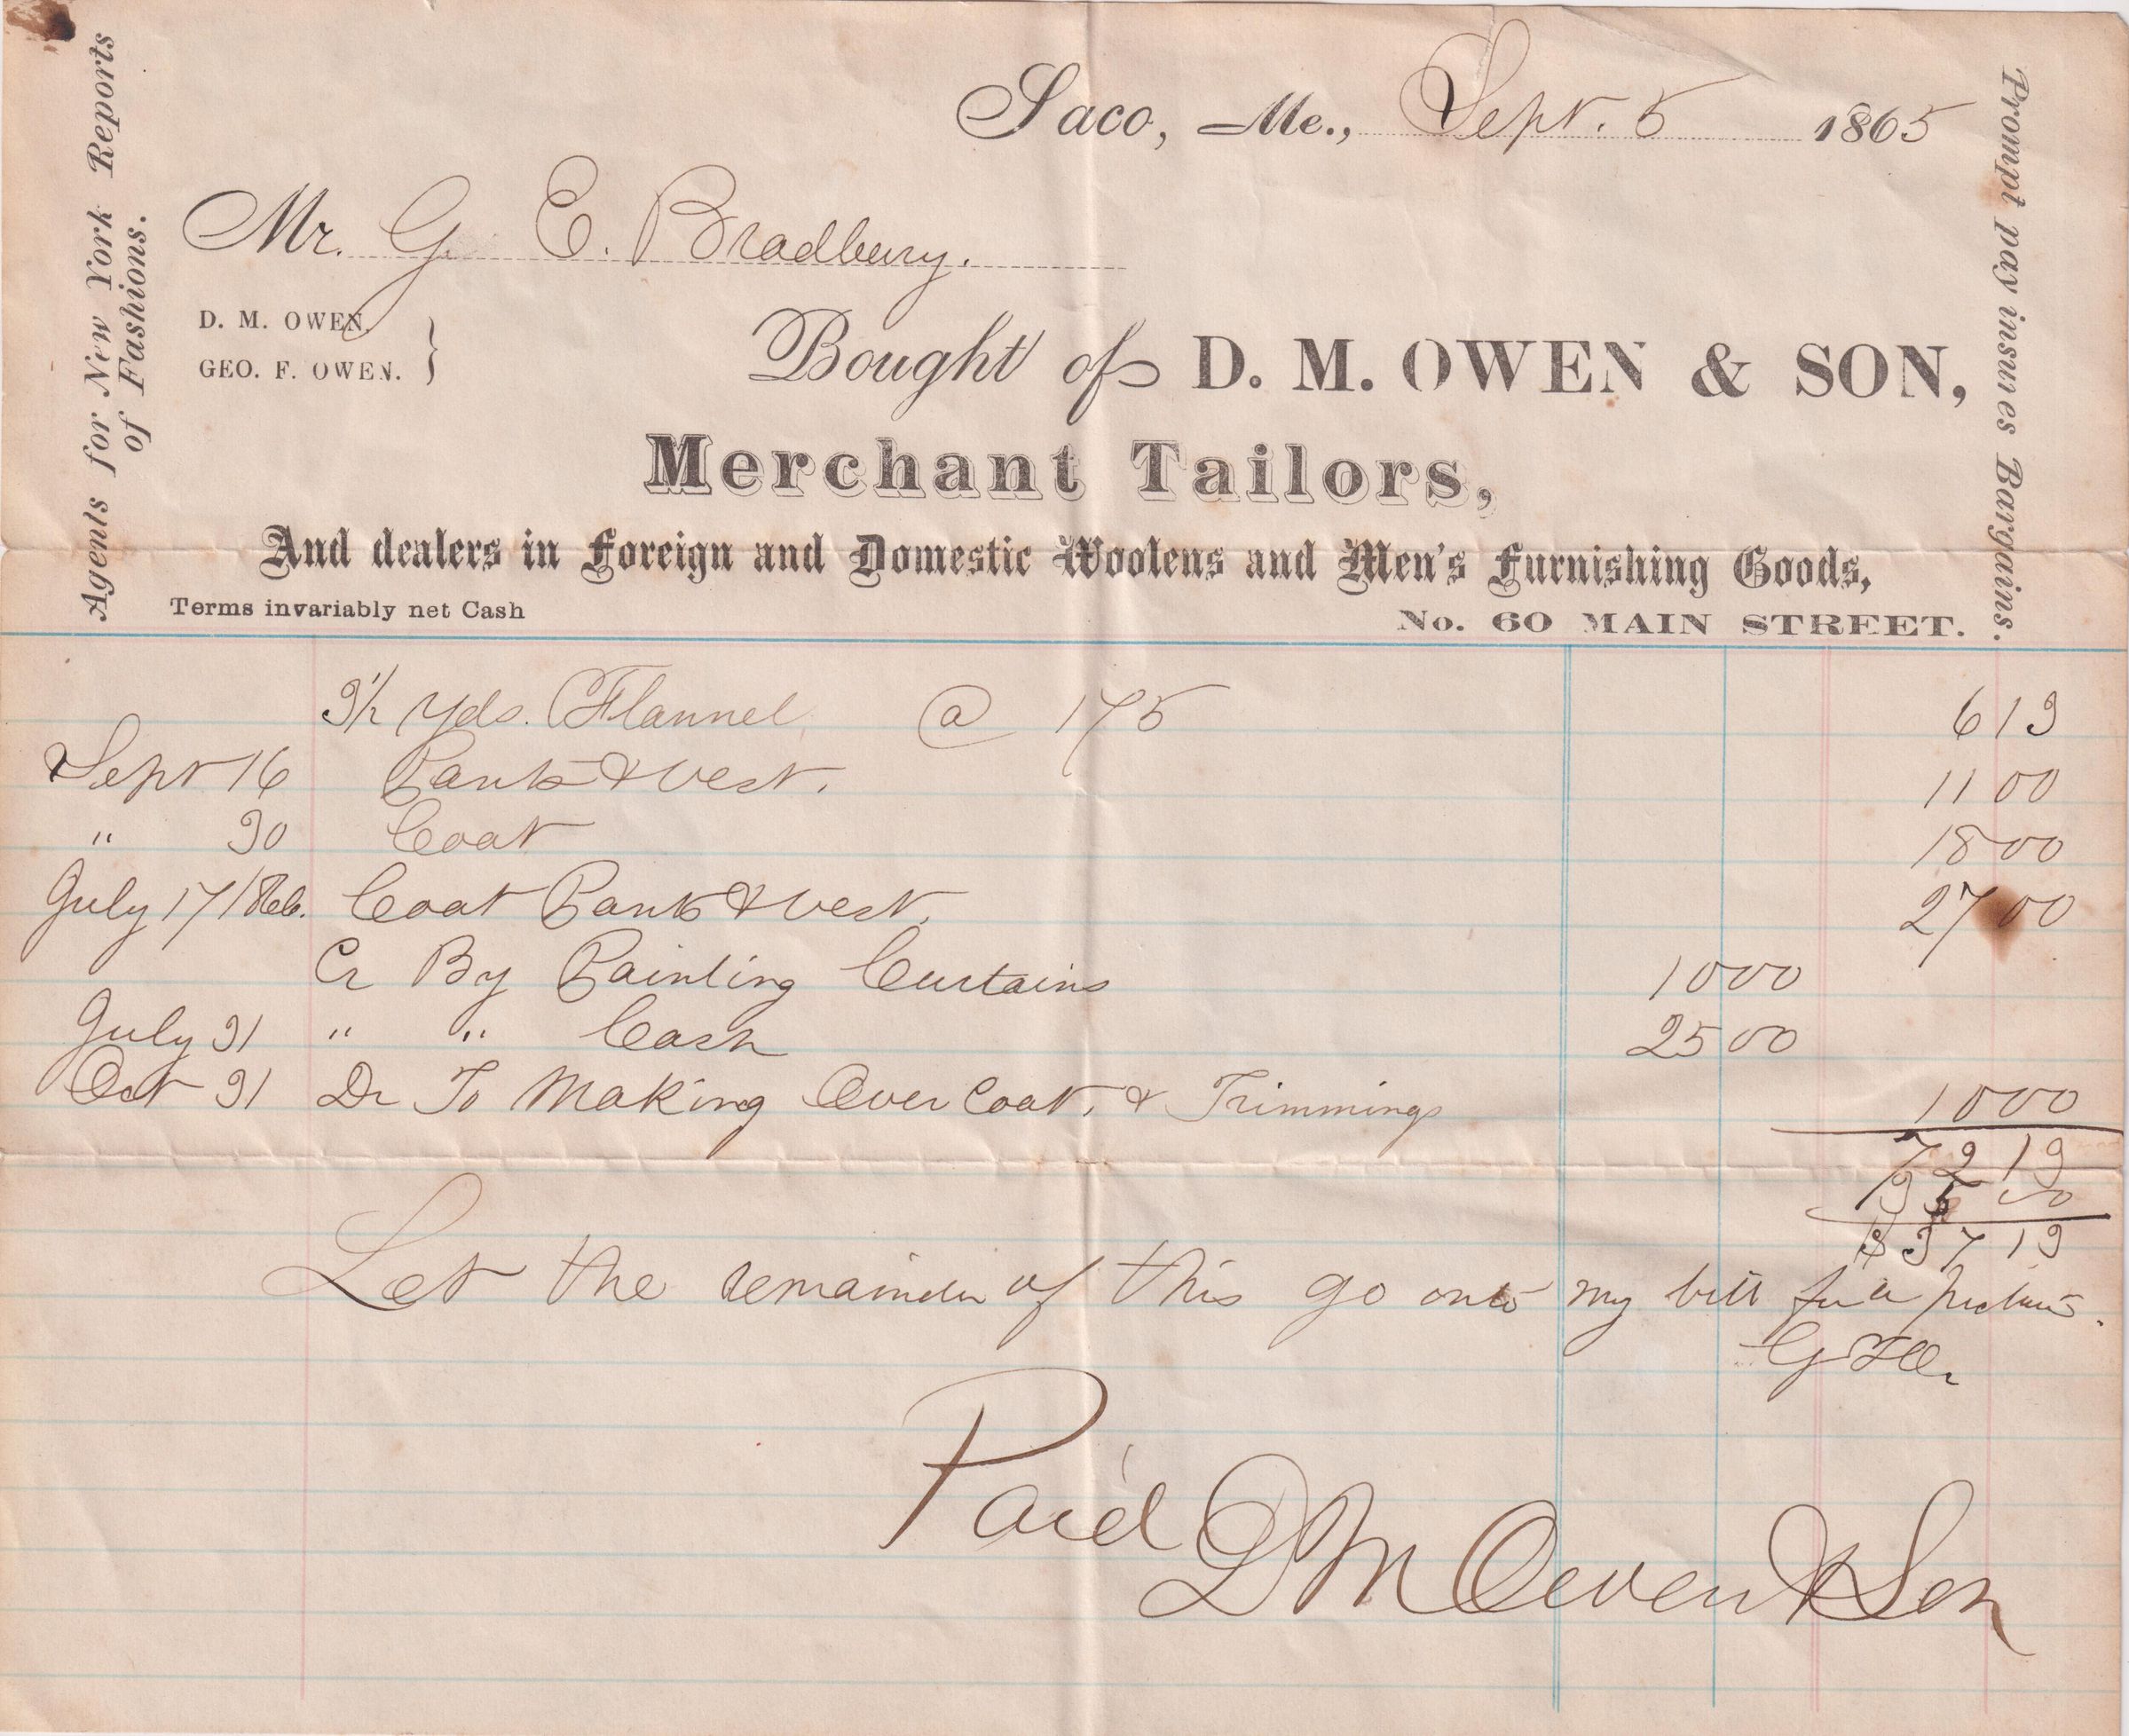 Saco, Me., Sept. 5 1865
Mr. G. E. Bradbury.
D. M. OWEN,
GEO. F. OWEN. }
Bought of D. M. OWEN & SON,
Merchant Tailors,
And dealers in Foreign and Domestic Woolens and Men's Furnishing Goods,
Terms invariably net Cash
No. 60 MAIN STREET.
Agents for New York Reports
of Fashions.
Prompt pay insures Bargains.
3 1/2 Yds. Flannel @ 175 6 13
Sept 16 Pants & Vest. 11 00
" 30 Coat 18 00
July 17/1866. Coat Pants & Vest. 27 00
Cr By Painting Curtains 10 00
July 31 " " Cash 25 00
Oct 31 Dr To Making Over Coat. & Trimmings 10 00
72 13
35 00
$ 37 13
Let the remainder of this go onto my bill for a picture.
Paid
D M Owen & Son